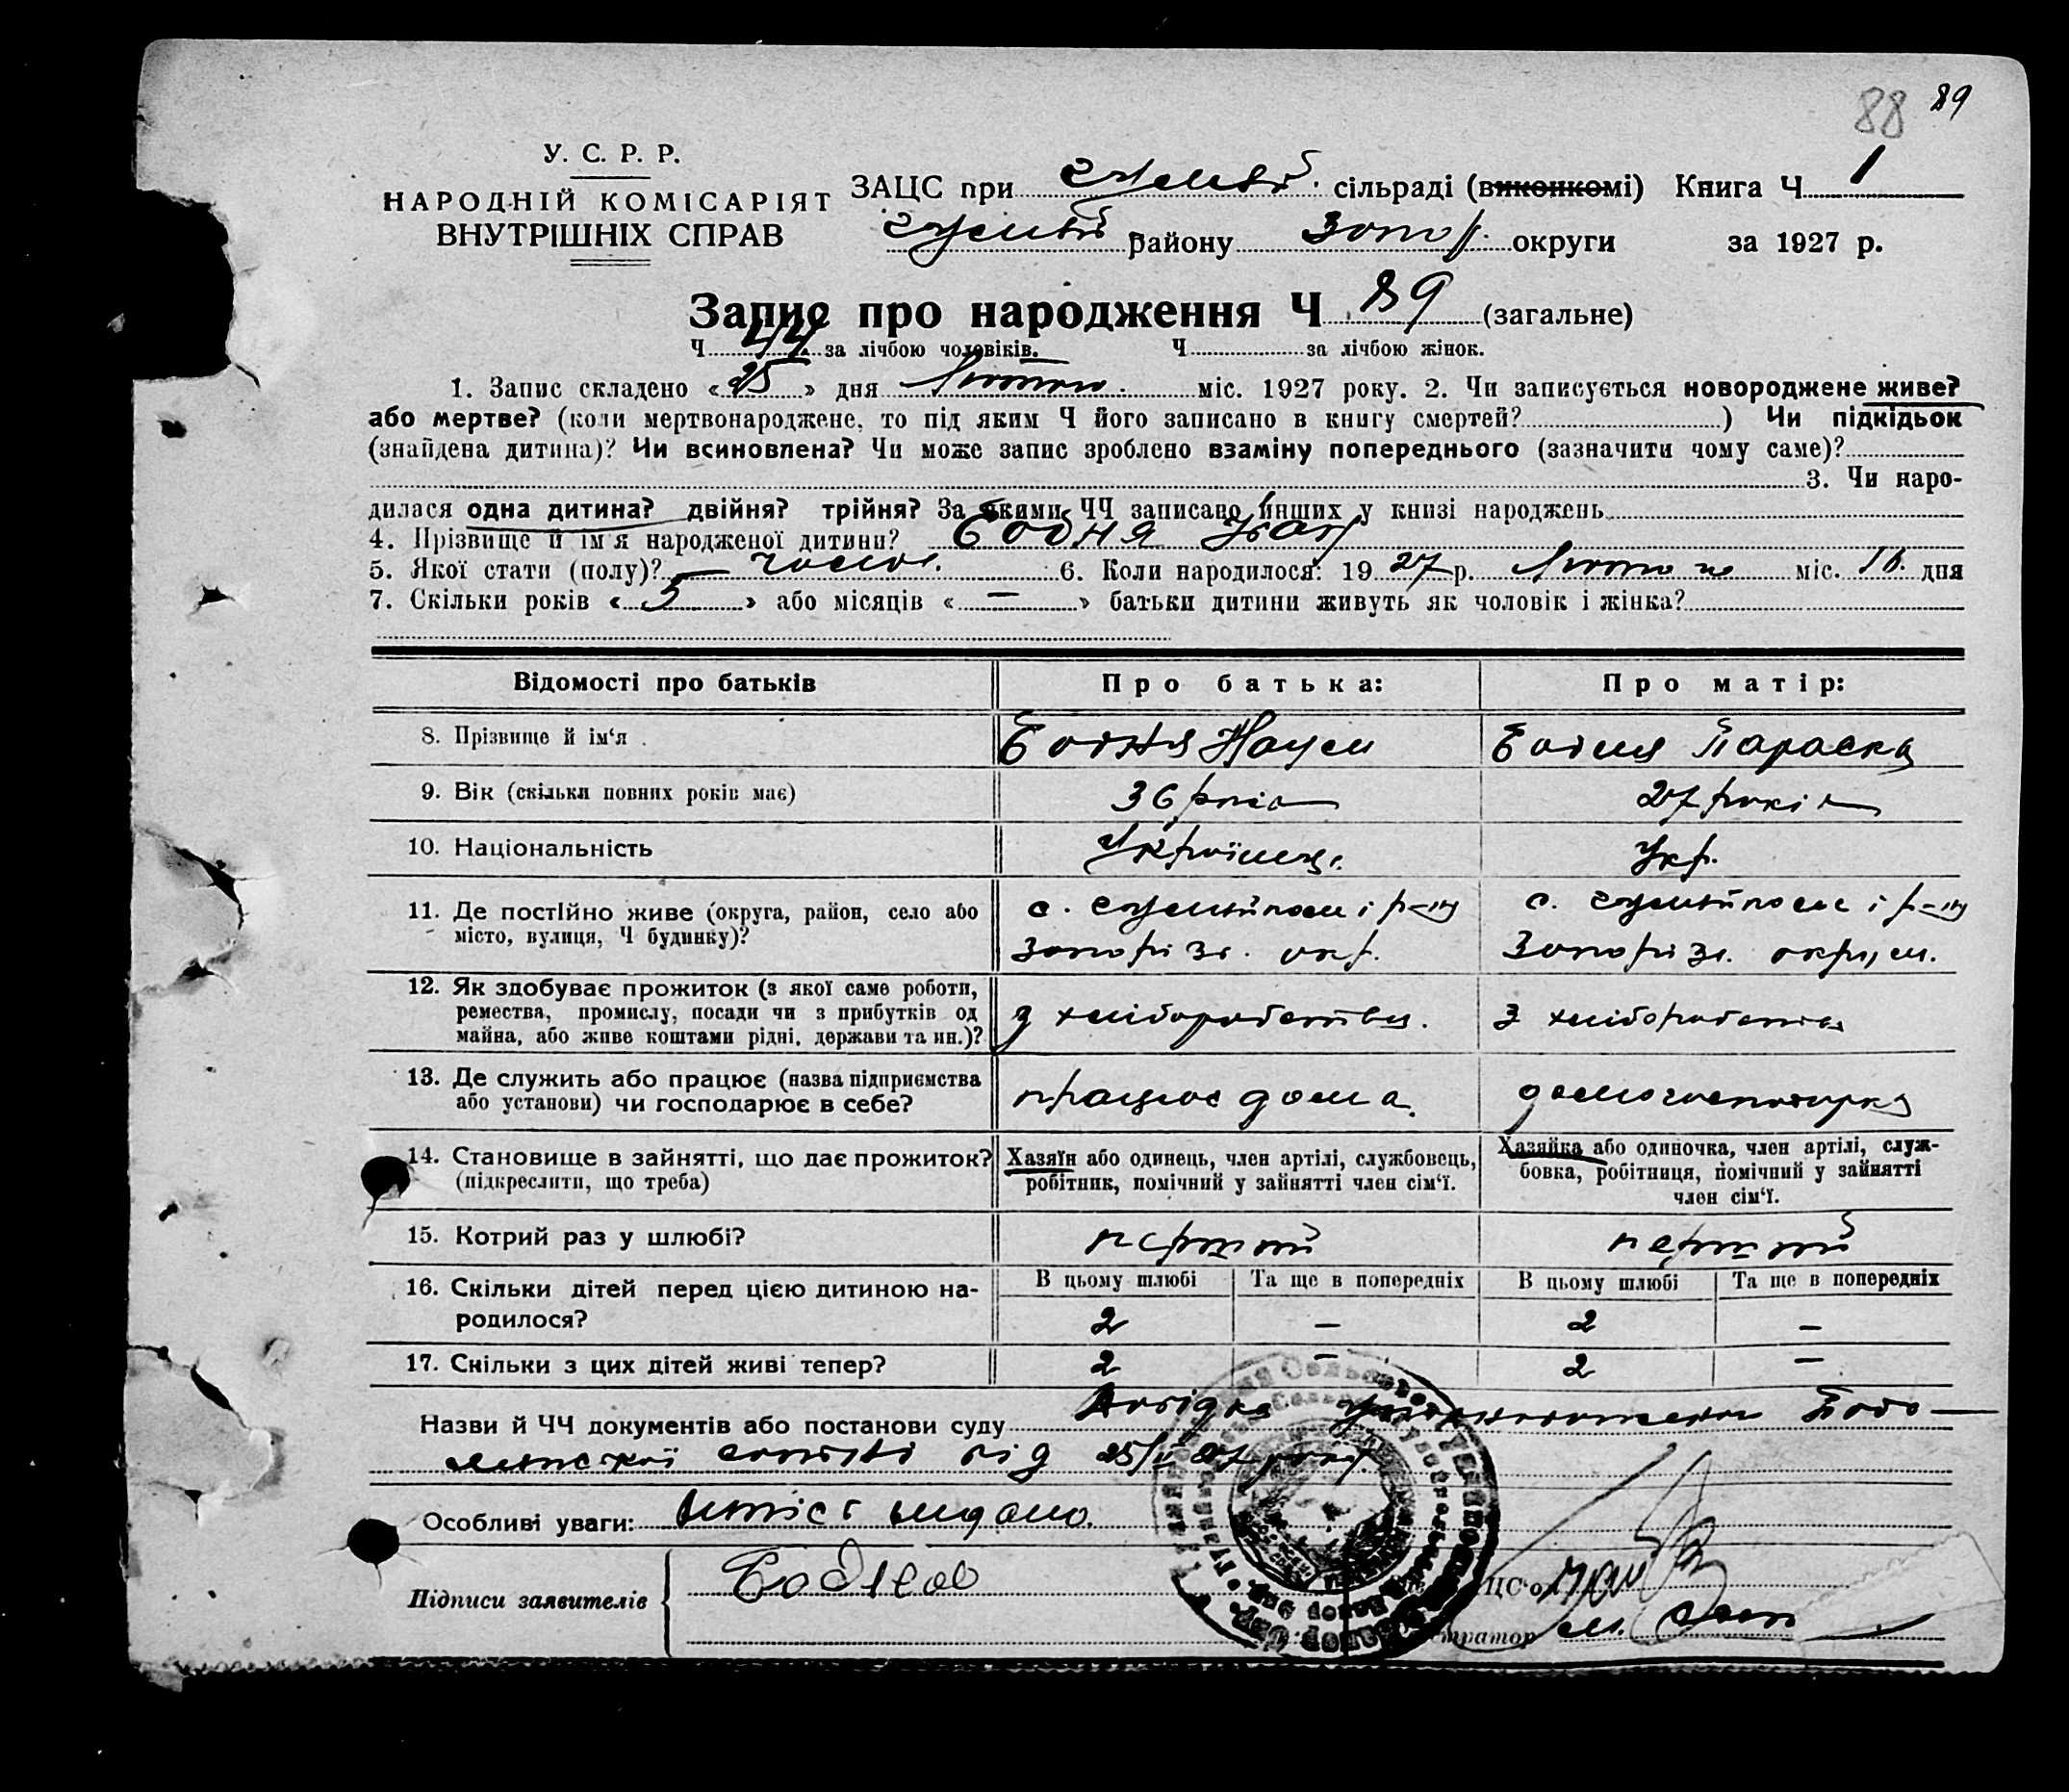 88 89
У. С. Р. Р.
НАРОДНІЙ КОМІСАРІЯТ
ВНУТРІШНІХ СПРАВ
ЗАЦС при сільраді (виконкомі) Книга Ч 1
району Запор. округи за 1927 р.
Запис про народження Ч 89 (загальне)
Ч 44 за лічбою чоловіків. Ч за лічбою жінок.
1. Запис складено «25» дня Лютого міс. 1927 року. 2. Чи записується новороджене живе?
або мертве? (коли мертвонароджене, то під яким Ч його записано в книгу смертей? ) Чи підкідьок
(знайдена дитина)? Чи всиновлена? Чи може запис зроблено взаміну попереднього (зазначити чому саме)?
3. Чи наро-
дилася одна дитина? двійня? трійня? За якими ЧЧ записано инших у книзі народжень
4. Прізвище й ім'я народженої дитини? Бодня
5. Якої стати (полу)? чолов. 6. Коли народилося: 1927 р. Лютого міс. 16. дня
7. Скільки років «5» або місяців «—» батьки дитини живуть як чоловік і жінка?
Відомості про батьків Про батька: Про матір:
8. Прізвище й ім'я Бодня Наум Бодня Параска
9. Вік (скільки повних років має) 36 років 27 років
10. Національність Українець. Укр.
11. Де постійно живе (округа, район, село або
місто, вулиця, Ч будинку)?
с. і р-ну с. і р-ну
Запоріз. окр. Запоріз. округи.
12. Як здобуває прожиток (з якої саме роботи,
ремества, промислу, посади чи з прибутків од
майна, або живе коштами рідні, держави та ин.)?
з хліборобства. з хліборобства
13. Де служить або працює (назва підприємства
або установи) чи господарює в себе?
працює дома. домогосподарка
14. Становище в зайнятті, що дає прожиток?
(підкреслити, що треба)
Хазяїн або одинець, член артілі, службовець,
робітник, помічний у зайнятті член сім'ї.
Хазяйка або одиночка, член артілі, служ-
бовка, робітниця, помічний у зайнятті
член сім'ї.
15. Котрий раз у шлюбі? перший перший
В цьому шлюбі Та ще в попередніх В цьому шлюбі Та ще в попередніх
16. Скільки дітей перед цією дитиною на-
родилося?
2 — 2 —
17. Скільки з цих дітей живі тепер? 2 — 2 —
Назви й ЧЧ документів або постанови суду Довідка
від 25/II 27 року.
Особливі уваги: видано.
Підписи заявителів Бодня